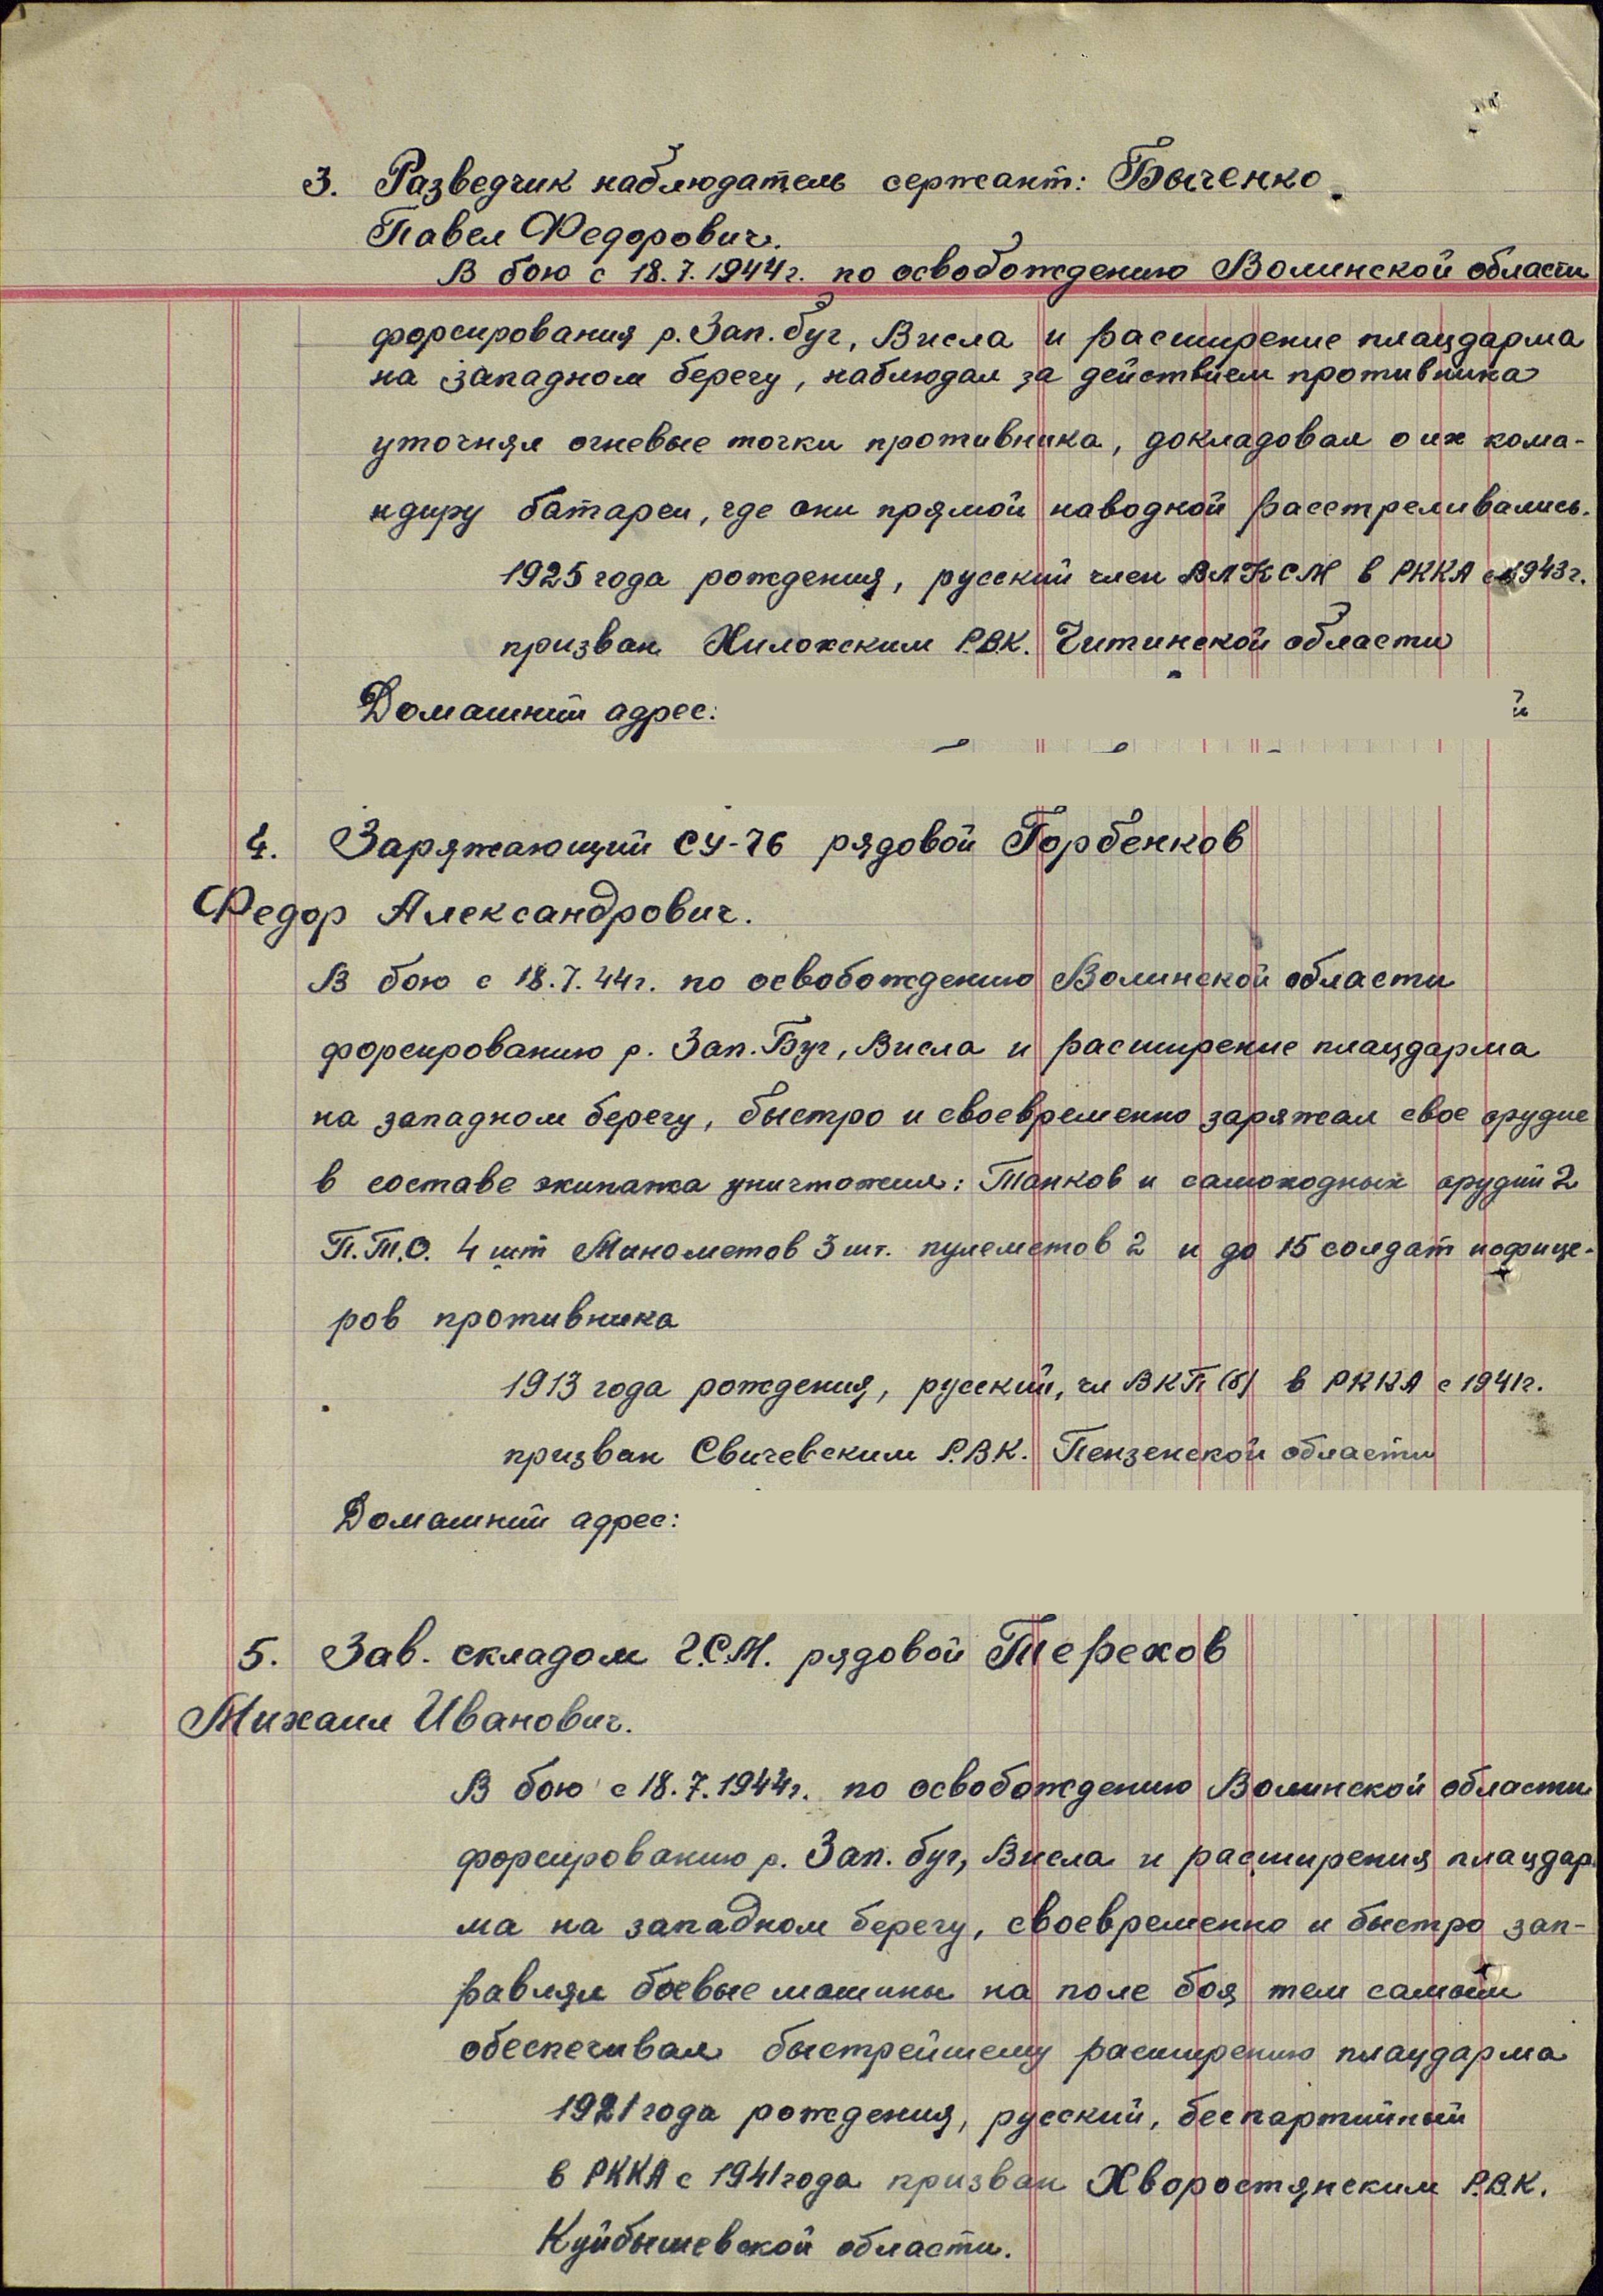 3. Разведчик наблюдатель сержант: Быченко
Павел Федорович.
В бою с 18.7.1944г. по освобождению Волинской области
форсирования р. Зап. буг, Висла и расширение плацдарма
на западном берегу, наблюдал за действием противника
уточнял огневые точки противника, докладовал о их кома-
ндиру батареи, где они прямой наводкой расстреливались.
1925 года рождения, русский член ВЛКСМ в РККА с 1943г.
призван Хилокским Р.В.К. Читинской области
Домашний адрес:
й
4. Заряжающий СУ-76 рядовой Горбенков
Федор Александрович.
В бою с 18.7.44г. по освобождению Волинской области
форсированию р. Зап. Буг, Висла и расширение плацдарма
на западном берегу, быстро и своевременно заряжал свое орудие
в составе экипажа уничтожил: Танков и самоходных орудий 2
П.Т.О. 4 шт Минометов 3 шт. пулеметов 2 и до 15 солдат и офице-
ров противника
1913 года рождения, русский, чл ВКП(б) в РККА с 1941г.
призван Свичевским Р.В.К. Пензенской области
Домашний адрес:
5. Зав. складом Г.С.М. рядовой Терехов
Михаил Иванович.
В бою с 18.7.1944г. по освобождению Волинской области
форсированию р. Зап. буг, Висла и расширения плацдар
ма на западном берегу, своевременно и быстро зап-
равлял боевые машины на поле боя тем самым
обеспечивал быстрейшему расширению плацдарма
1921 года рождения, русский, беспартийный
в РККА с 1941 года призван Хворостянским Р.В.К.
Куйбышевской области.